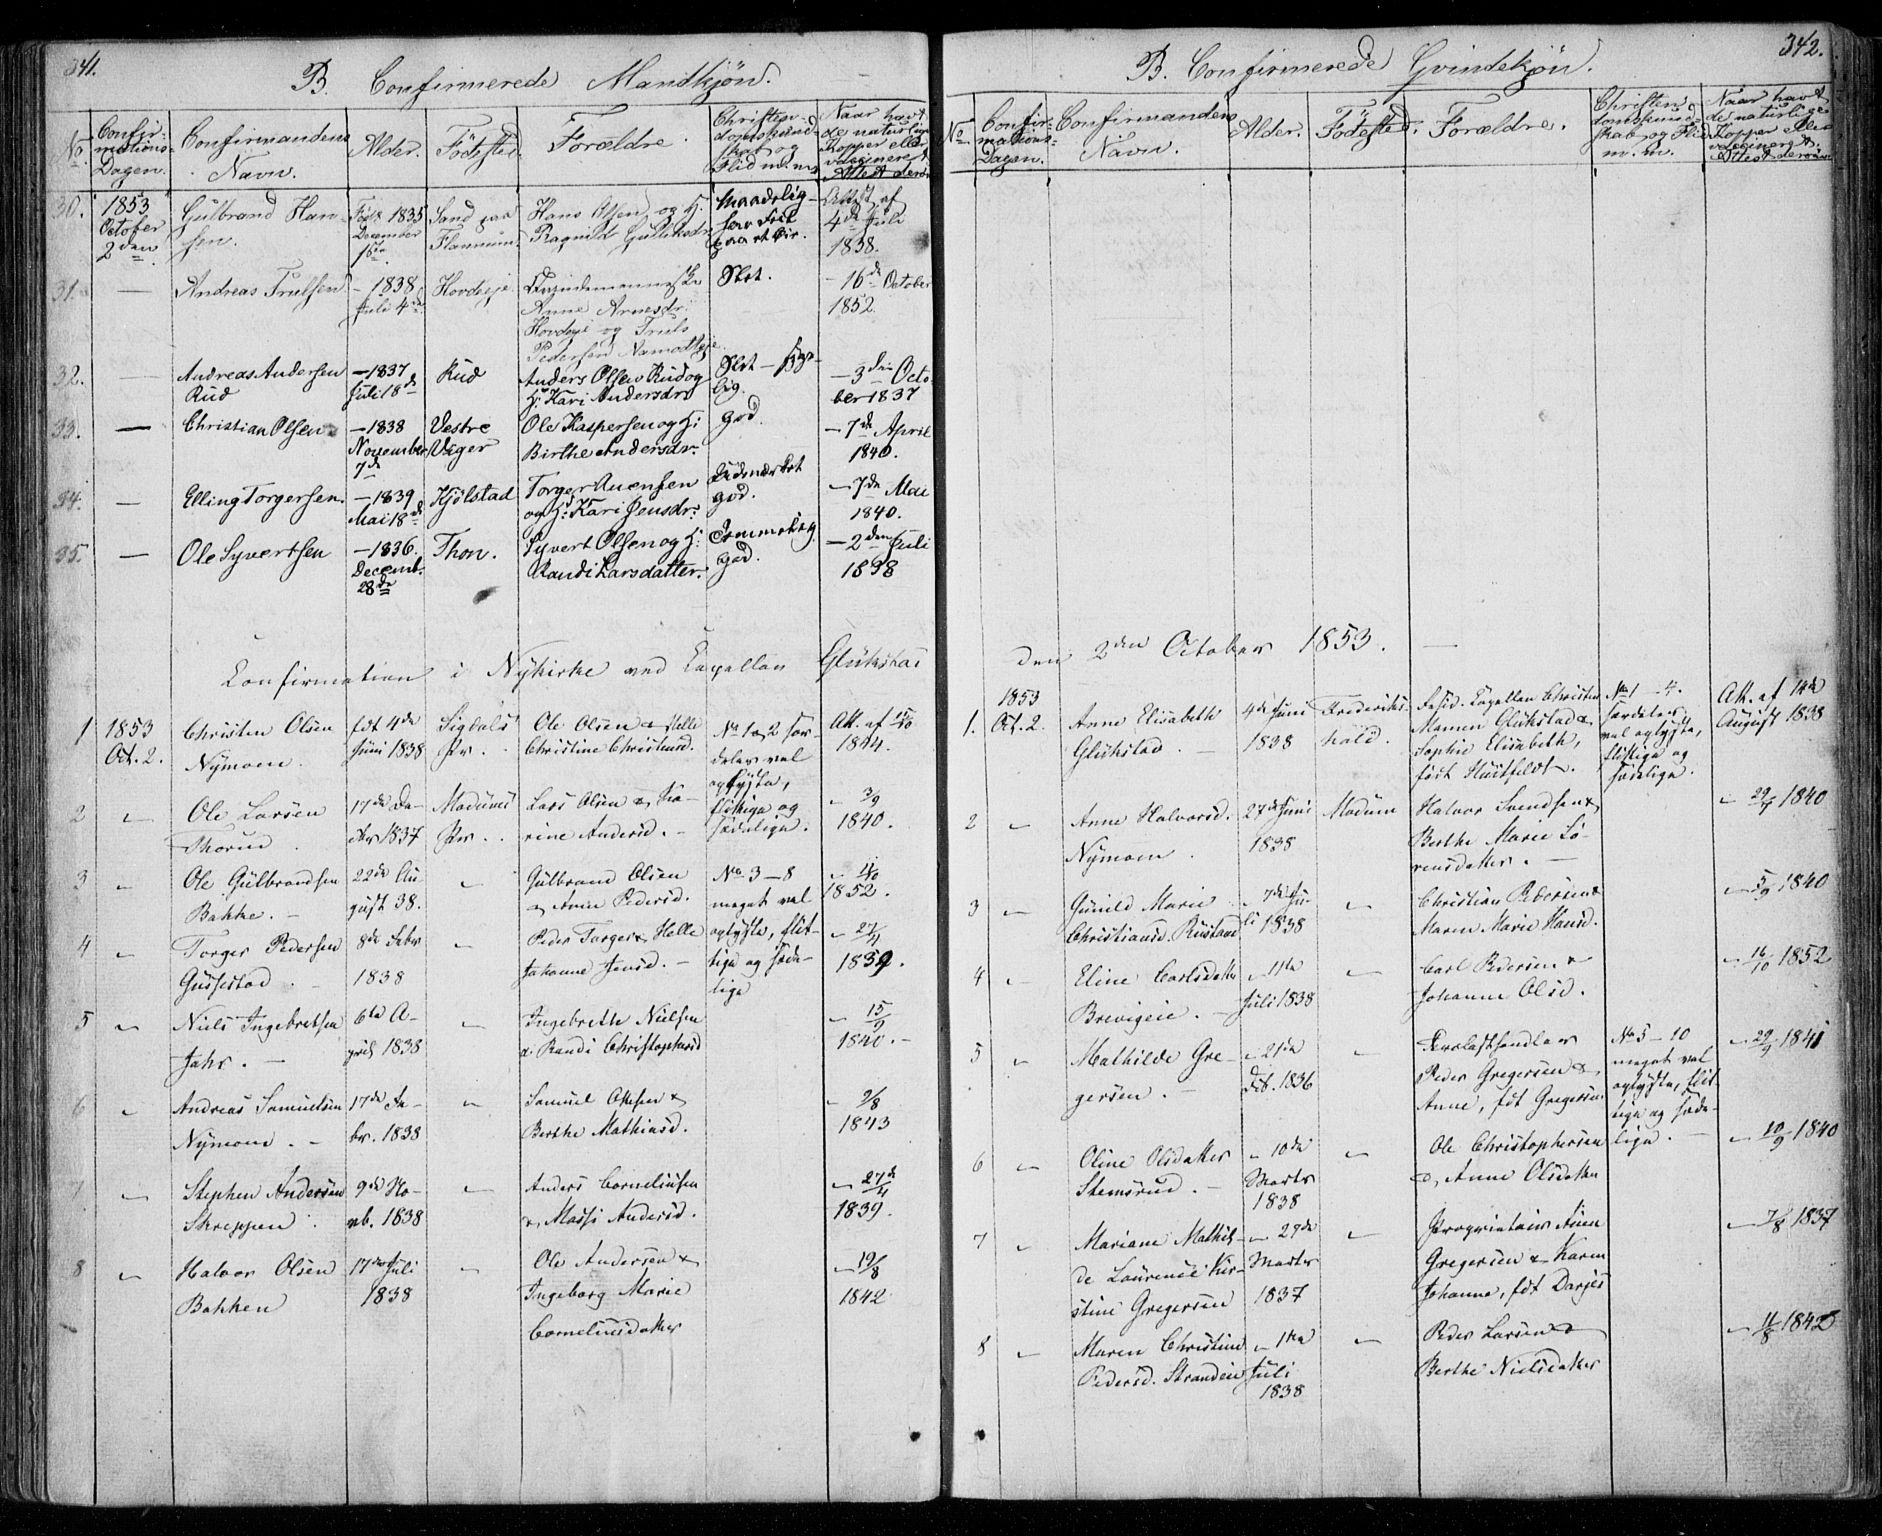 341.
B. Confirmerede Mandkjøn.
No. Confirmations-Dagen. Confirmandens Navn. Alder. Fødested. Forældre. Christendomskundskab og Flid m.m. Naar havt de naturlige Kopper eller vaccineret. Attest derom
30. 1853 October 2den. Gulbrand Hansen. Født 1835 December 15de. Sand paa Hans Olsen og H: Ragnild Gulliksdr. Maadelig Attest af 4de Juli 1838.
31. — Andreas Trulsen – 1838 Juli 4de Hovdeeje Qvindemenneske Anne Arnesdr. Hovdeje og Truls Pedersen Slet. – 16de October 1852.
32. — Andreas Andersen Rud – 1837 Juli 18de Rud Anders Olsen Rud og H: Kari Andersdr. Slet – – 3die October 1837
33. — Christian Olsen – 1838 November 7de Vestre Viger Ole Kaspersen og H: Birthe Andersdr. God. – 7de April 1840.
34. — Elling Torgersen. – 1839 Mai 18de Kjølstad Torger Auensen og H: Kari Jensdr: Udmærket god. – 7de Mai 1840.
35. — Ole Syvertsen – 1836. Decemb. 28de Thon. Syvert Olsen og H: Randi Larsdatter. Temmelig god. – 2den Juli 1838
Confirmation i Nykirke ved Capellan Glükstad
1 1853 Oct. 2. Christen Olsen Nymoen. fdt 4de Juni 1838 Sigdals Pr. Ole Olsen & Helle Christine Christensd. No 1 & 2 særdeles vel oplyste, flittige og sædelige. Att. af 15/10 1844.
2 " Ole Larsen Thorud. 17de Decbr 1837 Modums Pr. Lars Olsen & Karine Andersd. – " 3/9 1840.
3 " Ole Gulbrandsen Bakke. – 22de August 38. " Gulbrand Olsen & Anne Pedersd. No 3–8 meget vel oplyste, flittige og sædelige " 11/10 1852.
4 " Torger Pedersen Gussestad. 8de Febr 1838 " Peder Torgers & Helle Johanne Jensd. – " 27/4 1839.
5 " Niels Ingebretsen Jahr. – 6te April 1838 " Ingebreth Nielsen & Randi Christophersd " 15/9 1840. –
6 " Andreas Samuelsen Nymoen. – 17de Febr. 1838 " Samuel Olsen & Berthe Mathiasd. " 9/8 1843
7 " Stephen Andersen Skreppen. 9de Novb. 1838 " Anders Corneliusen & Massi Andersd. " 27de/4 1839.
8 " Halvor Olsen Bakken 17de Juli 1838 " Ole Andersen & Ingeborg Marie Corneliusdatter " 19/8 1842
342.
B. Confirmerede Qvindekjøn.
No Confirmations-Dagen. Confirmandens Navn. Alder. Fødested. Forældre. Christendomskundskab og Flid m. m. Naar havt de naturlige Kopper eller vaccineret. Attest derom
den 2den October 1853. —
1. 1853 Oct. 2. Anne Elisabeth Glükstad. – 4de Juni 1838 Frederikshald. Resid. Capellan Christen Mamen Glükstad & Sophie Elisabeth, født Huitfeldt. No 1–4. særdeles vel oplyste, flittige og sædelige. Att. af 14de August 1838
2 " Anne Halvorsd. Nymoen. 27de Juni 1838 Modum Halvor Svendsen & Berthe Marie Sørensdatter. — " 29/7 1840
3 " Gunild Marie Christiansd. Rustand " 7de Juli 1838 " Christian Pedersen & Maren Marie Hansd. " 5/9 1840
4 " Eline Carlsdatter Brevigeie. – " 11te Juli 1838 " Carl Pedersen & Johanne Olsd. " 16/10 1852
5 " Mathilde Gregersen. – " 21de Oct. 1836 " Trælasthandler Peder Gregersen & Anne, fdt Gregersen No 5–10 meget vel oplyste, flittige og sædelige. – " 29/9 1841
6 " Oline Olsdatter Stemsrud. – " 10de Marts 1838 " Ole Christophersen & Anne Olsdatter " 10/9 1840
7 " Mariane Mathilde Laurence Kirstine Gregersen " 29de Marts 1837 " Proprietair Auen Gregersen & Karen Johanne, fdt Darjes " 7/8 1837
8 " Maren Christine Pedersd. Strandeie " 1ste Juli 1838 " Peder Larsen & Berthe Nielsdatter " 11/8 1842